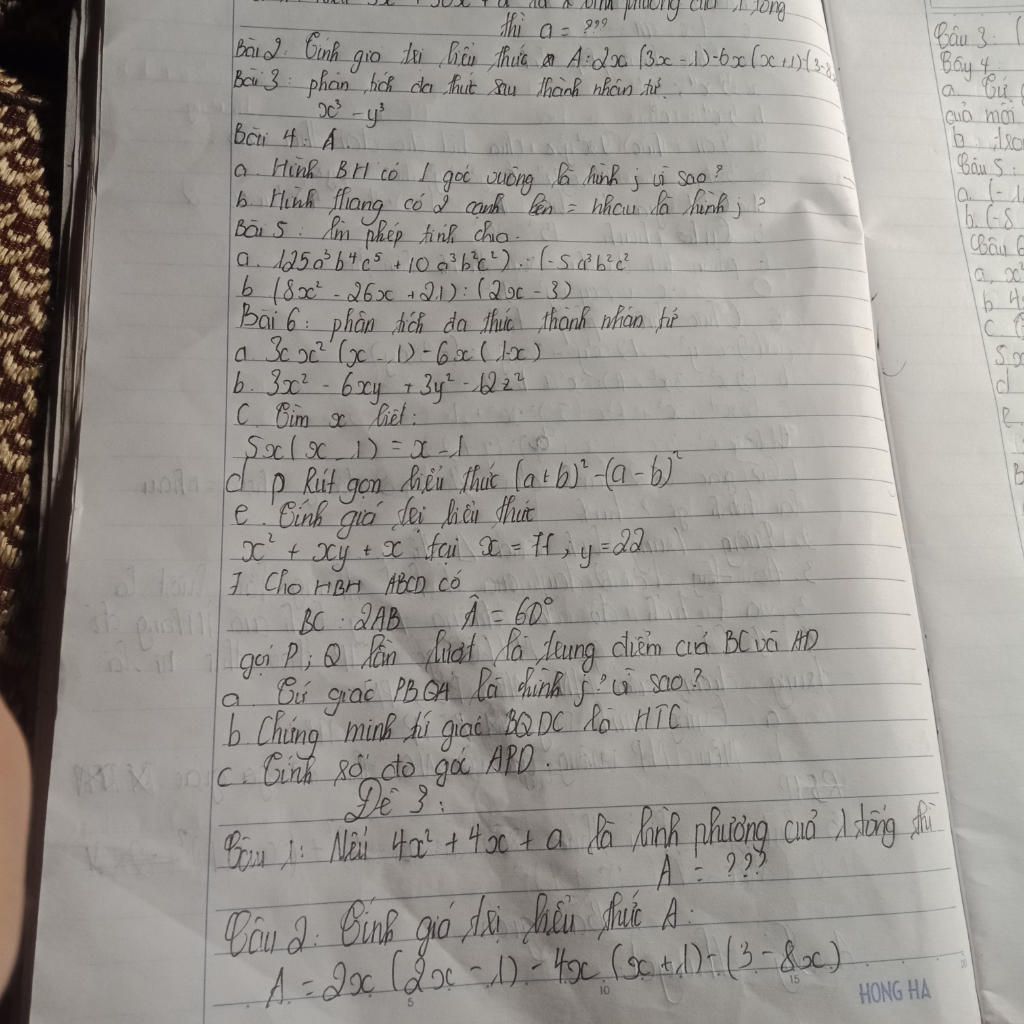 phương của 1 tổng
thì a = ???
Bài 2. Tính giá trị biểu thức A: 2x (3x - 1) - 6x (x + 1) - (3 - 8
Bài 3: phân tích đa thức sau thành nhân tử.
x³ - y³
Bài 4: A
a. Hình BH có 1 góc vuông là hình j vì sao?
b. Hình thang có 2 cạnh bên = nhau là hình j?
Bài 5: làm phép tính chia.
a. 125a³b⁴c⁵ + 10a³b²c²) : (-5a³b²c²
b (8x² - 26x + 21) : (2x - 3)
Bài 6: phân tích đa thức thành nhân tử
a. 3x² (x - 1) - 6x (1-x)
b. 3x² - 6xy + 3y² - 12z²
C. Tìm x biết:
5x (x - 1) = x - 1
d p Rút gọn biểu thức (a+b)² - (a - b)²
e. Tính giá trị biểu thức
x² + xy + x tại x = 77, y = 22
7 Cho HBH ABCD có
BC : 2AB Â = 60°
gọi P; Q lần lượt là trung điểm của BC và AD
a. Tứ giác PBQA là hình j? vì sao?
b Chứng minh tứ giác BQDC là HTC
c. Tính số đo góc APD.
Đề 3:
Câu 1: Nếu 4x² + 4x + a là bình phương của 1 tổng thì
A = ???
Câu 2: Tính giá trị biểu thức A:
A = 2x (2x - 1) - 4x (x + 1) - (3 - 8x)
HONG HA
Câu 3: (
Bây 4
a. Tứ
của mỗi
b.
Câu 5:
a. (-1
b. (-5
Câu 6
a, x
b 4
c. (
5x
d
e.
B